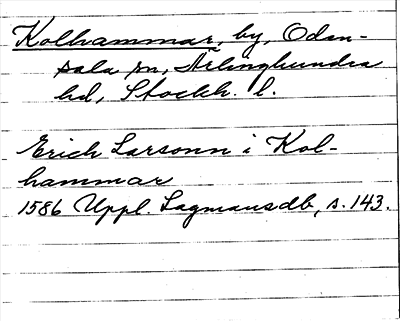 Kolhammar, by, Oden-
sala sn, Ärlinghundra
hd, Stockh. l.
Erich Larsonn i Kol-
hammar
1586 Uppl. Lagmansdb, s. 143.